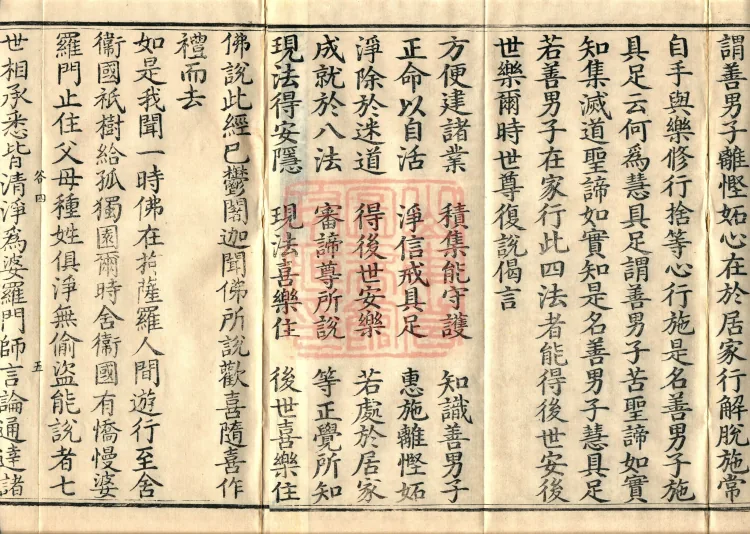 謂善男子離慳妬心在於居家行解脫施常
自手與樂修行捨等心行施是名善男子施
具足云何爲慧具足謂善男子苦聖諦如實
知集滅道聖諦如實知是名善男子慧具足
若善男子在家行此四法者能得後世安後
世樂爾時世尊復說偈言
方便建諸業 積集能守護 知識善男子
正命以自活 淨信戒具足 惠施離慳妬
淨除於迷道 得後世安樂 若處於居家
成就於八法 審諦尊所說 等正覺所知
現法得安隱 現法喜樂住 後世喜樂住
佛說此經已鬱闍迦聞佛所說歡喜隨喜作
禮而去
如是我聞一時佛在拘薩羅人間遊行至舍
衞國祇樹給孤獨園爾時舍衞國有憍慢婆
羅門止住父母種姓俱淨無偷盜能說者七
世相承悉皆清淨爲婆羅門師言論通達諸
谷四 五